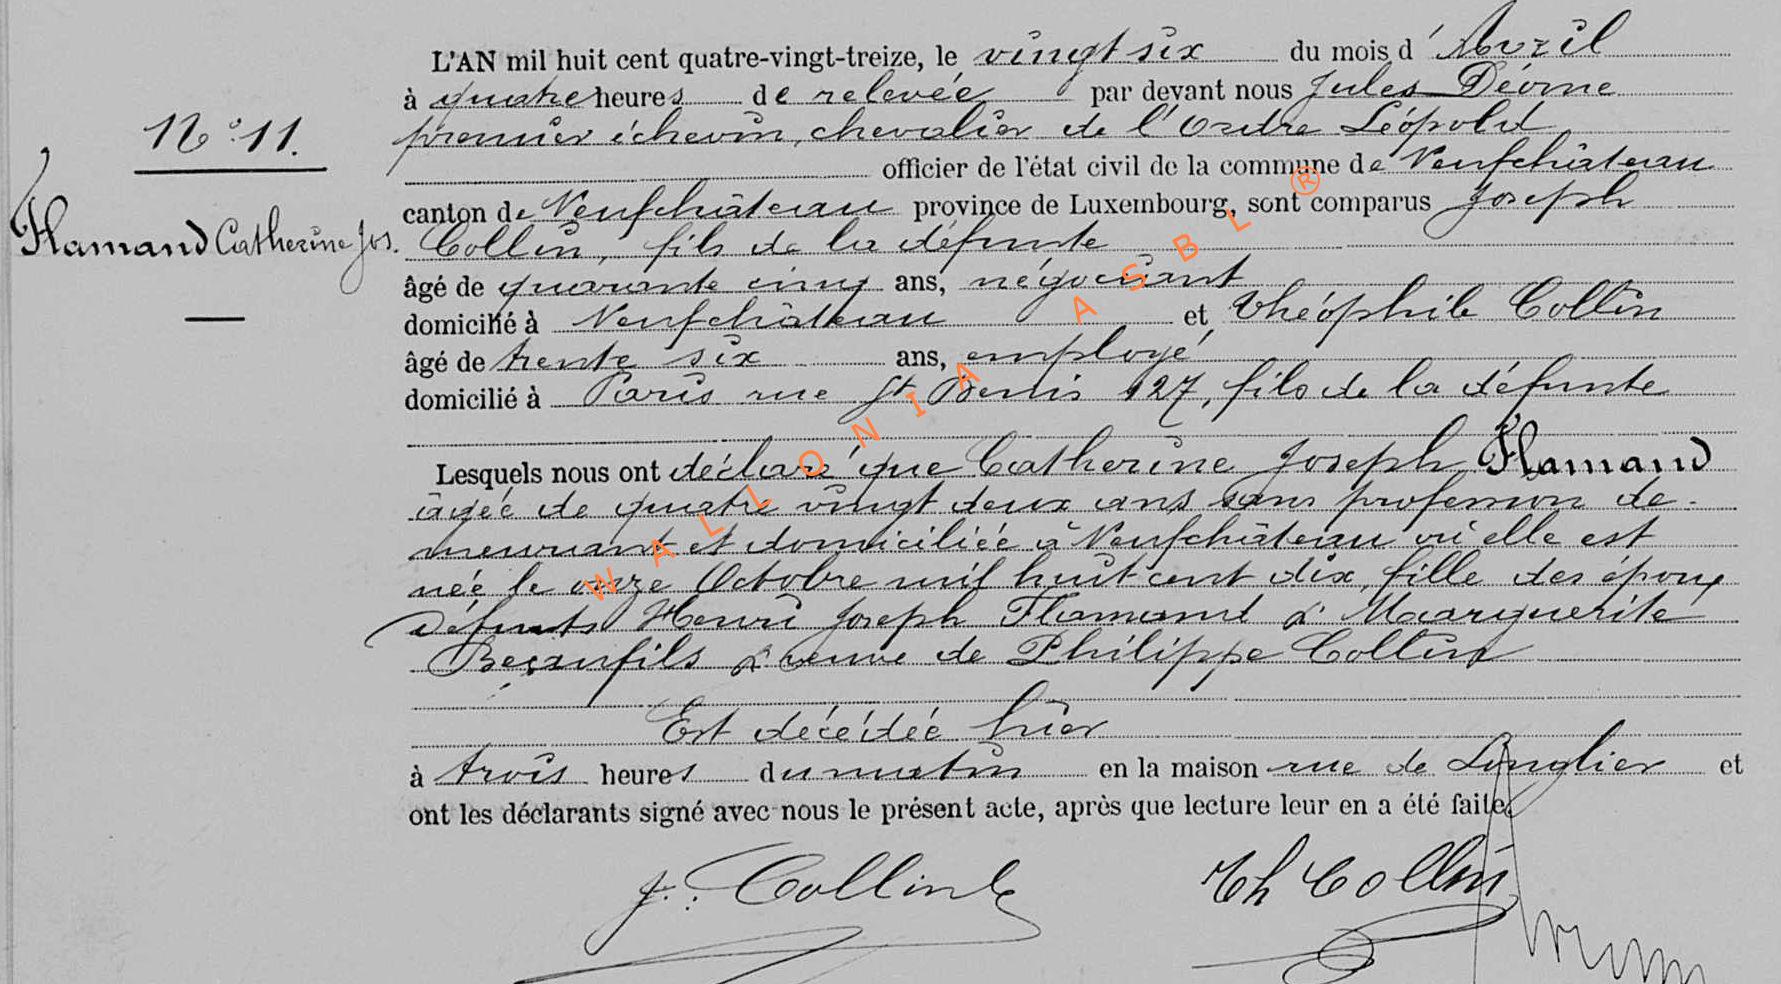 L'AN mil huit cent quatre-vingt-treize, le vingt six du mois d' Avril
à quatre heures de relevée par devant nous Jules Déome
premier échevin, chevalier de l'Ordre Léopold
N° 11.
officier de l'état civil de la commune de Neufchâteau
canton de Neufchâteau province de Luxembourg, sont comparus Joseph
Flamand Catherine Jos.
Collin, fils de la défunte
âgé de quarante cinq ans, négociant
domicilié à Neufchâteau et Théophile Collin
âgé de trente six ans, employé
domicilié à Paris rue St Denis 127, fils de la défunte
Lesquels nous ont déclaré que Catherine Joseph Flamand
âgée de quatre vingt deux ans sans profession de-
meurant et domiciliée à Neufchâteau où elle est
née le onze Octobre mil huit cent dix, fille des époux
défunts Henri Joseph Flamand & Marguerite
Beçanfils & veuve de Philippe Collin
Est décédée hier
à trois heures du matin en la maison rue de Longlier et
ont les déclarants signé avec nous le présent acte, après que lecture leur en a été faite.
J. Collin Th Collin
WALLONIA ASBL ®